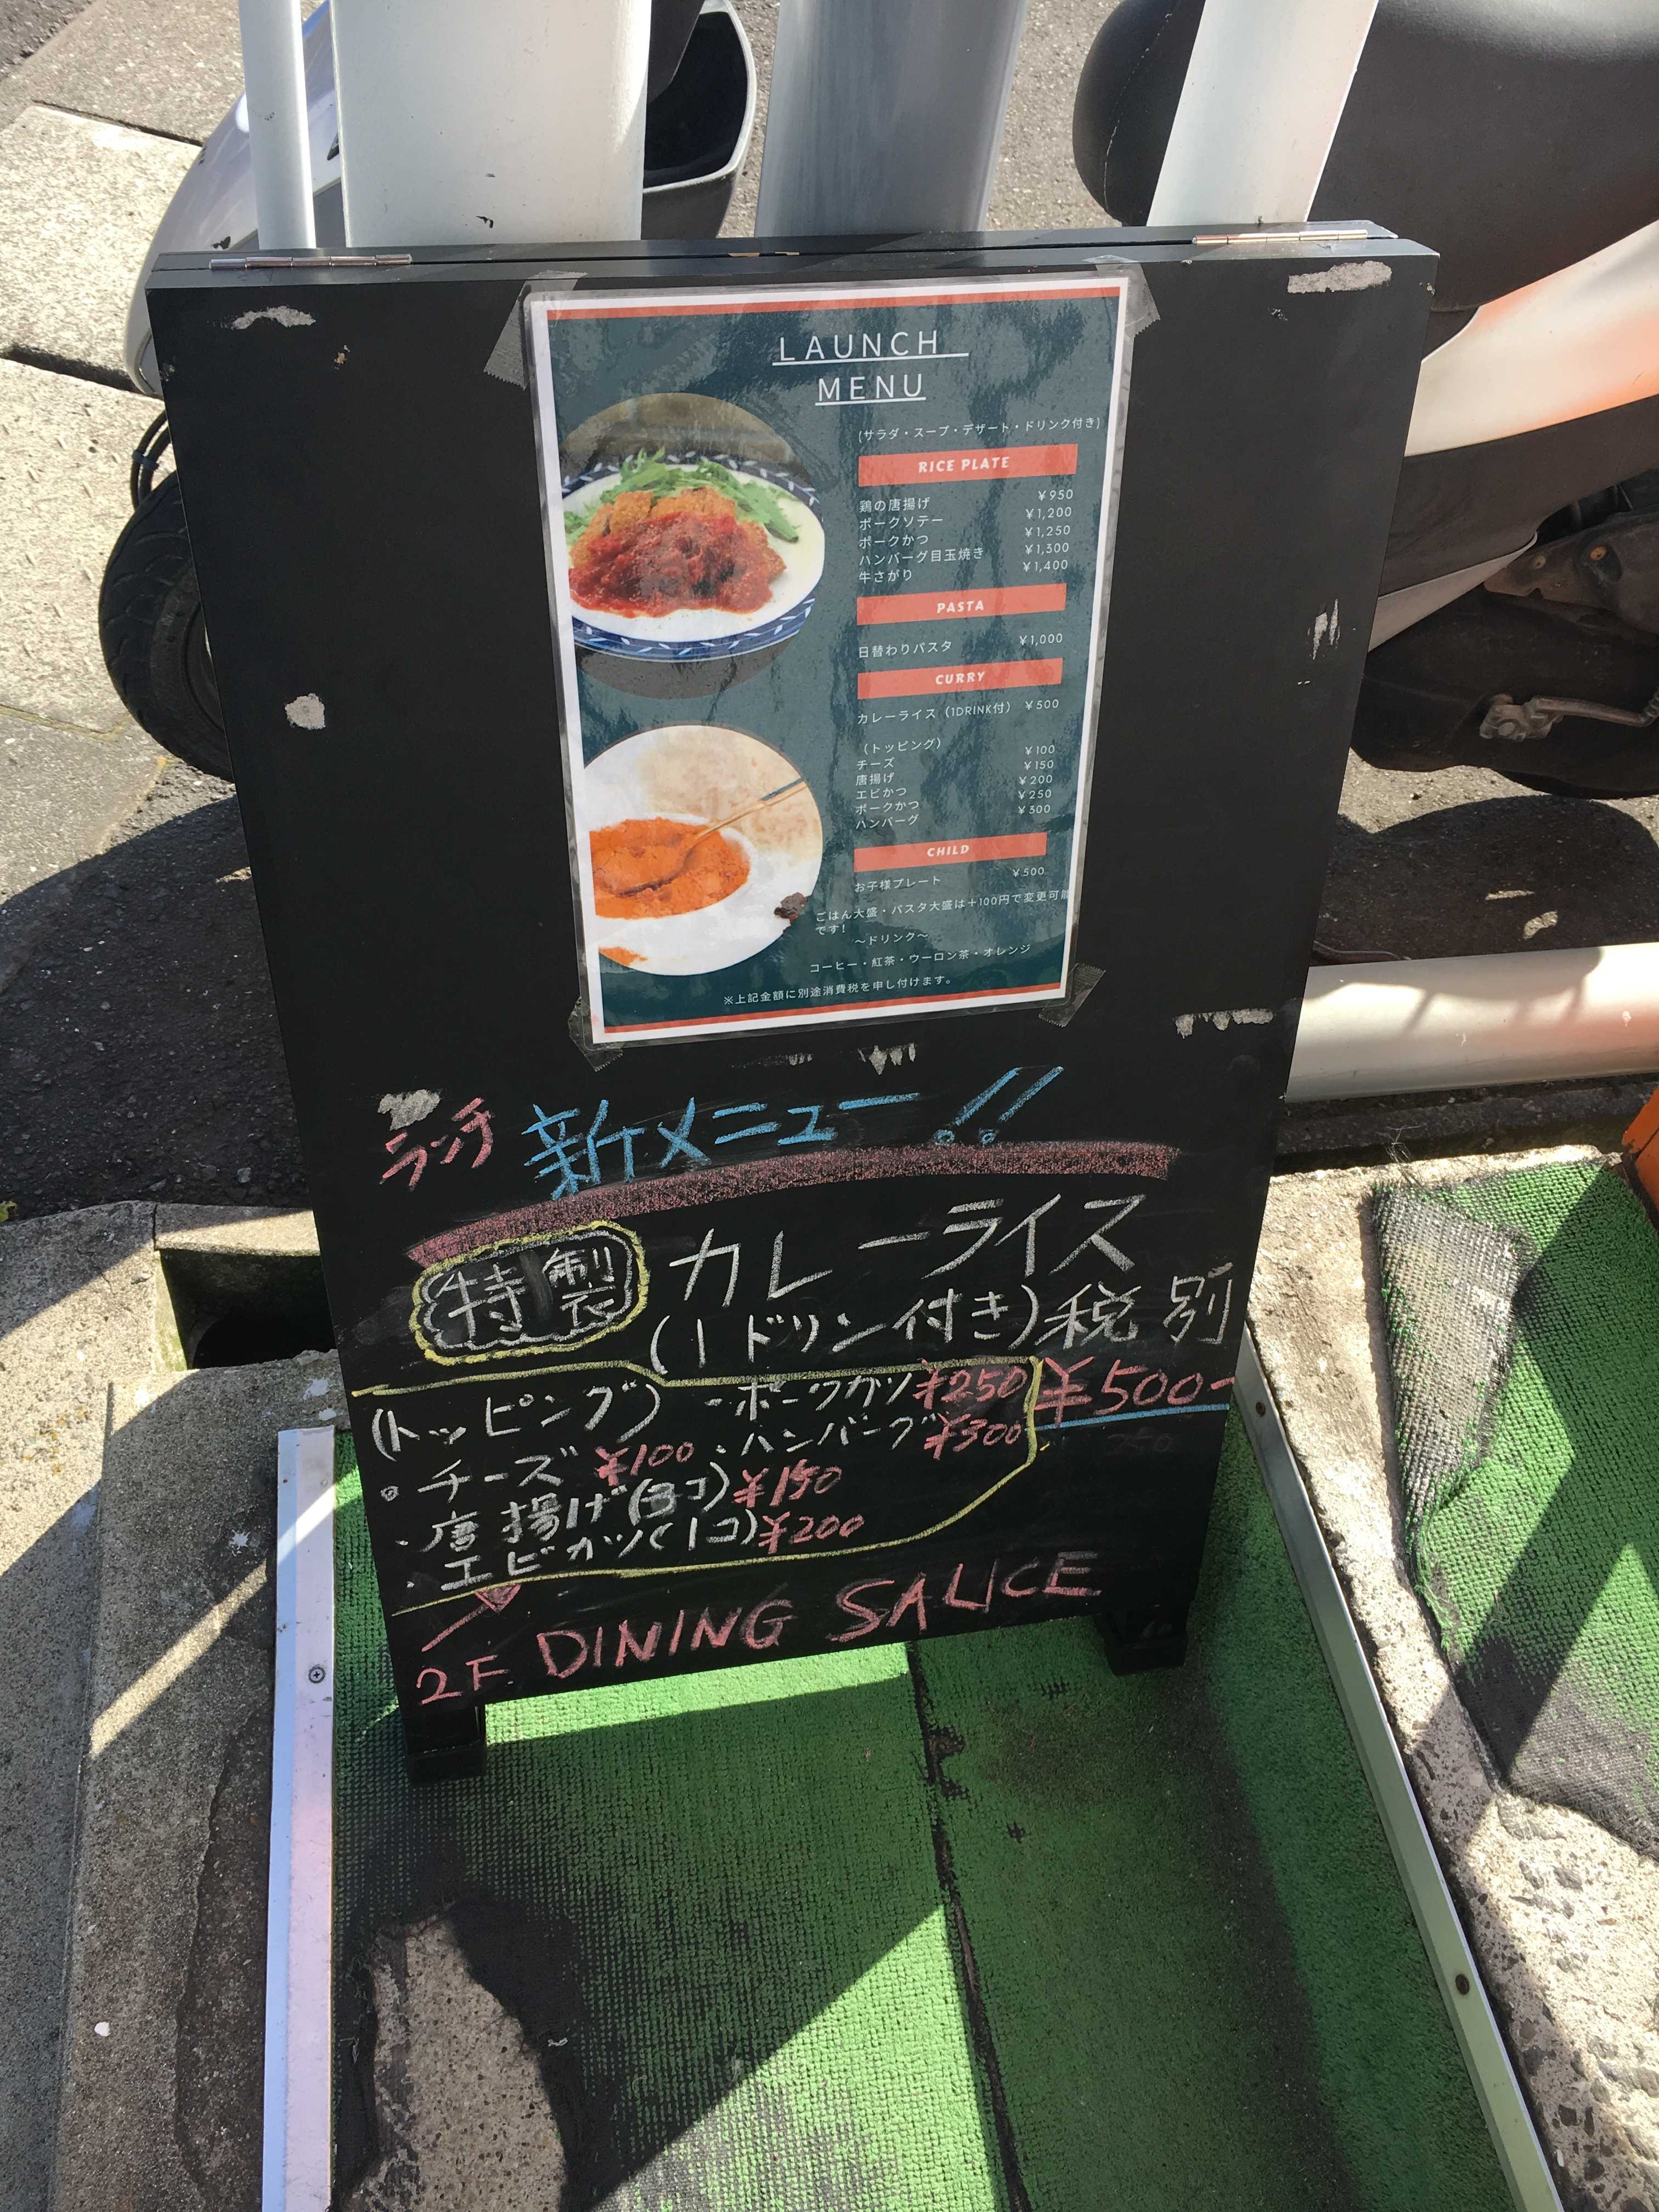 LAUNCH
MENU
(サラダ・スープ・デザート・ドリンク付き)
RICE PLATE
鶏の唐揚げ ¥950
ポークソテー ¥1,200
ポークかつ ¥1,250
ハンバーグ目玉焼き ¥1,300
牛さがり ¥1,400
PASTA
日替わりパスタ ¥1,000
CURRY
カレーライス（1DRINK付） ¥500
（トッピング）
チーズ ¥100
唐揚げ ¥150
エビかつ ¥200
ポークかつ ¥250
ハンバーグ ¥300
CHILD
お子様プレート ¥500
ごはん大盛・パスタ大盛は＋100円で変更可能
です！
～ドリンク～
コーヒー・紅茶・ウーロン茶・オレンジ
※上記金額に別途消費税を申し付けます。
ランチ 新メニュー!!
特製 カレーライス
(1ドリン付き)税別
¥500-
(トッピング) ・ポークカツ ¥250
・チーズ ¥100 ・ハンバーグ ¥300
・唐揚げ(3コ) ¥150
・エビカツ(1コ) ¥200
2F. DINING SAUCE